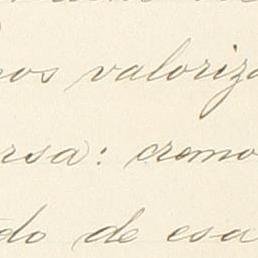 nos valoriza
rsa: cremo
do de esa